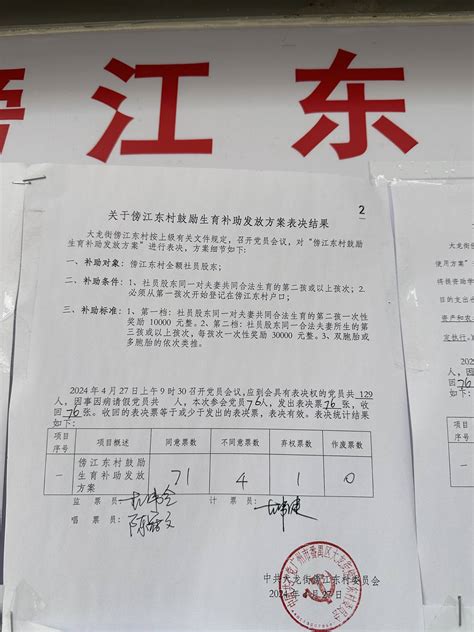 傍江东
2
关于傍江东村鼓励生育补助发放方案表决结果
大龙街傍江东村按上级有关文件规定，召开党员会议，对“傍江东村鼓励
生育补助发放方案”进行表决，方案细节如下：
一、补助对象：傍江东村全额社员股东；
二、补助条件：1、社员股东同一对夫妻共同合法生育的第二孩或以上孩次；2、
必须从第一孩次开始登记在傍江东村户口；
三、补助标准：1、第一档：社员股东同一对夫妻共同合法生育的第二孩一次性
奖励 10000 元整。2、第二档：社员股东同一合法夫妻所生的第
三孩或以上孩次，每孩次一次性奖励 30000 元整。3、双胞胎或
多胞胎的依次类推。
2024 年 4 月 27 日上午 9 时 30 召开党员会议，应到会具有表决权的党员共 129
人，因事因病请假党员共 人，本次参会党员 76 人，发出表决票 76 张，收
回 76 张。收回的表决票等于或少于发出的表决票，表决有效。表决统计结果
如下：
项目序号 项目概述 同意票数 不同意票数 弃权票数 作废票数
一 傍江东村鼓励生育补助发放方案 71 4 1 0
监 票 员： 计 票 员：
唱 票 员：
中共大龙街傍江东村委员会
2024 年 4 月 27 日
使用方案”